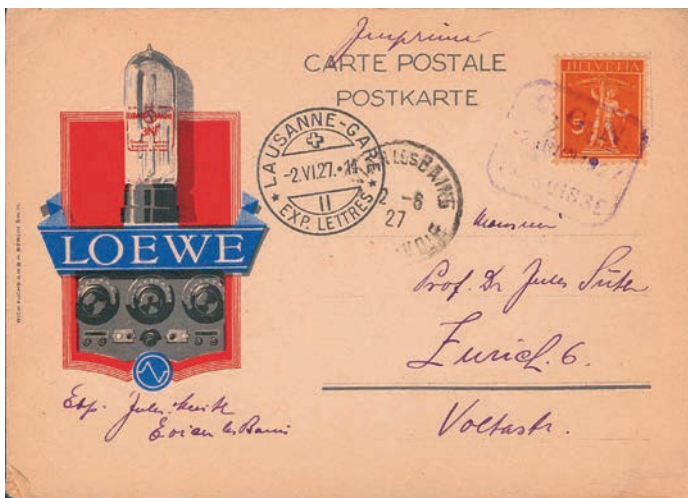 Imprimé
CARTE POSTALE
POSTKARTE
HELVETIA
5
3NF
LAUSANNE-GARE
-2.VI.27.-11
II
EXP. LETTRES
LES BAINS
2 -6
27
SUISSE
LOEWE
Monsieur
Prof. Dr Jules Suter
Zurich. 6.
Voltastr.
Exp. Jules
Evian les Bains